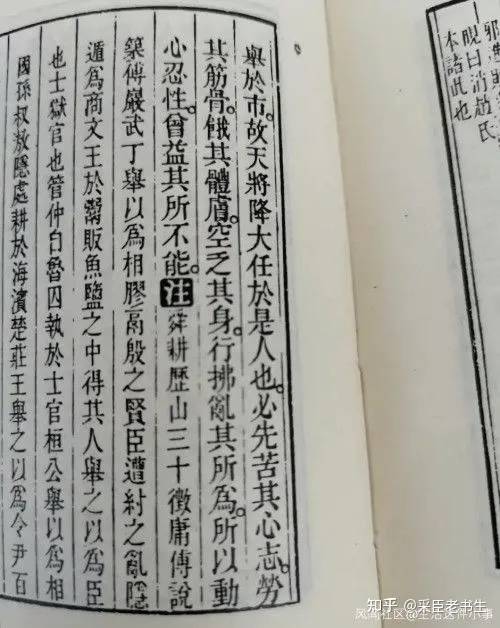 晛曰消趙氏
本諸此也
舉於市。故天將降大任於是人也。必先苦其心志。勞
其筋骨。餓其體膚。空乏其身。行拂亂其所爲。所以動
心忍性。曾益其所不能。注舜耕歷山三十徵庸傅說
築傅巖武丁舉以爲相膠鬲殷之賢臣遭紂之亂隱
遁爲商文王於鬻販魚鹽之中得其人舉之以爲臣
也士獄官也管仲自魯囚執於士官桓公舉以爲相
國孫叔敖隱處耕於海濱楚莊王舉之以爲令尹百
知乎 @采臣老书生
社区@生活这件小事